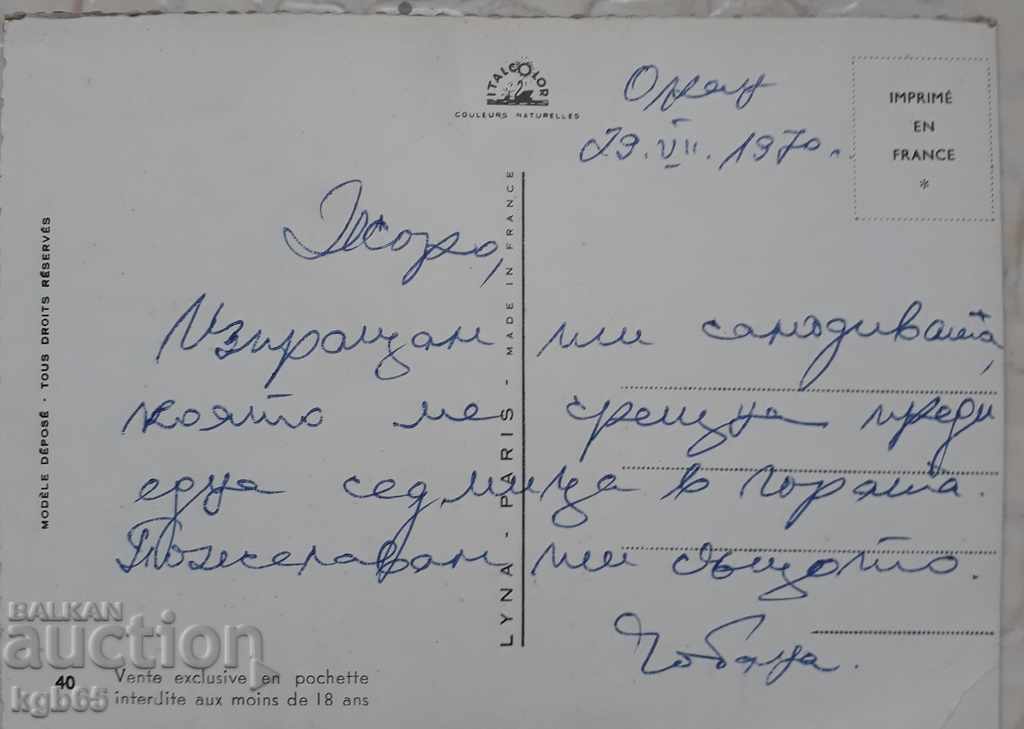 ITALCOLOR
COULEURS NATURELLES
IMPRIMÉ
EN
FRANCE
*
29.VII.1970.
Изпращам ти самодивата,
която ме срещна преди
една седмица в гората.
Пожелавам ти същото.
Чобана.
MODÈLE DÉPOSÉ · TOUS DROITS RÉSERVÉS
LYNA - PARIS - MADE IN FRANCE
40
Vente exclusive en pochette
interdite aux moins de 18 ans
BALKAN
auction
kgb65